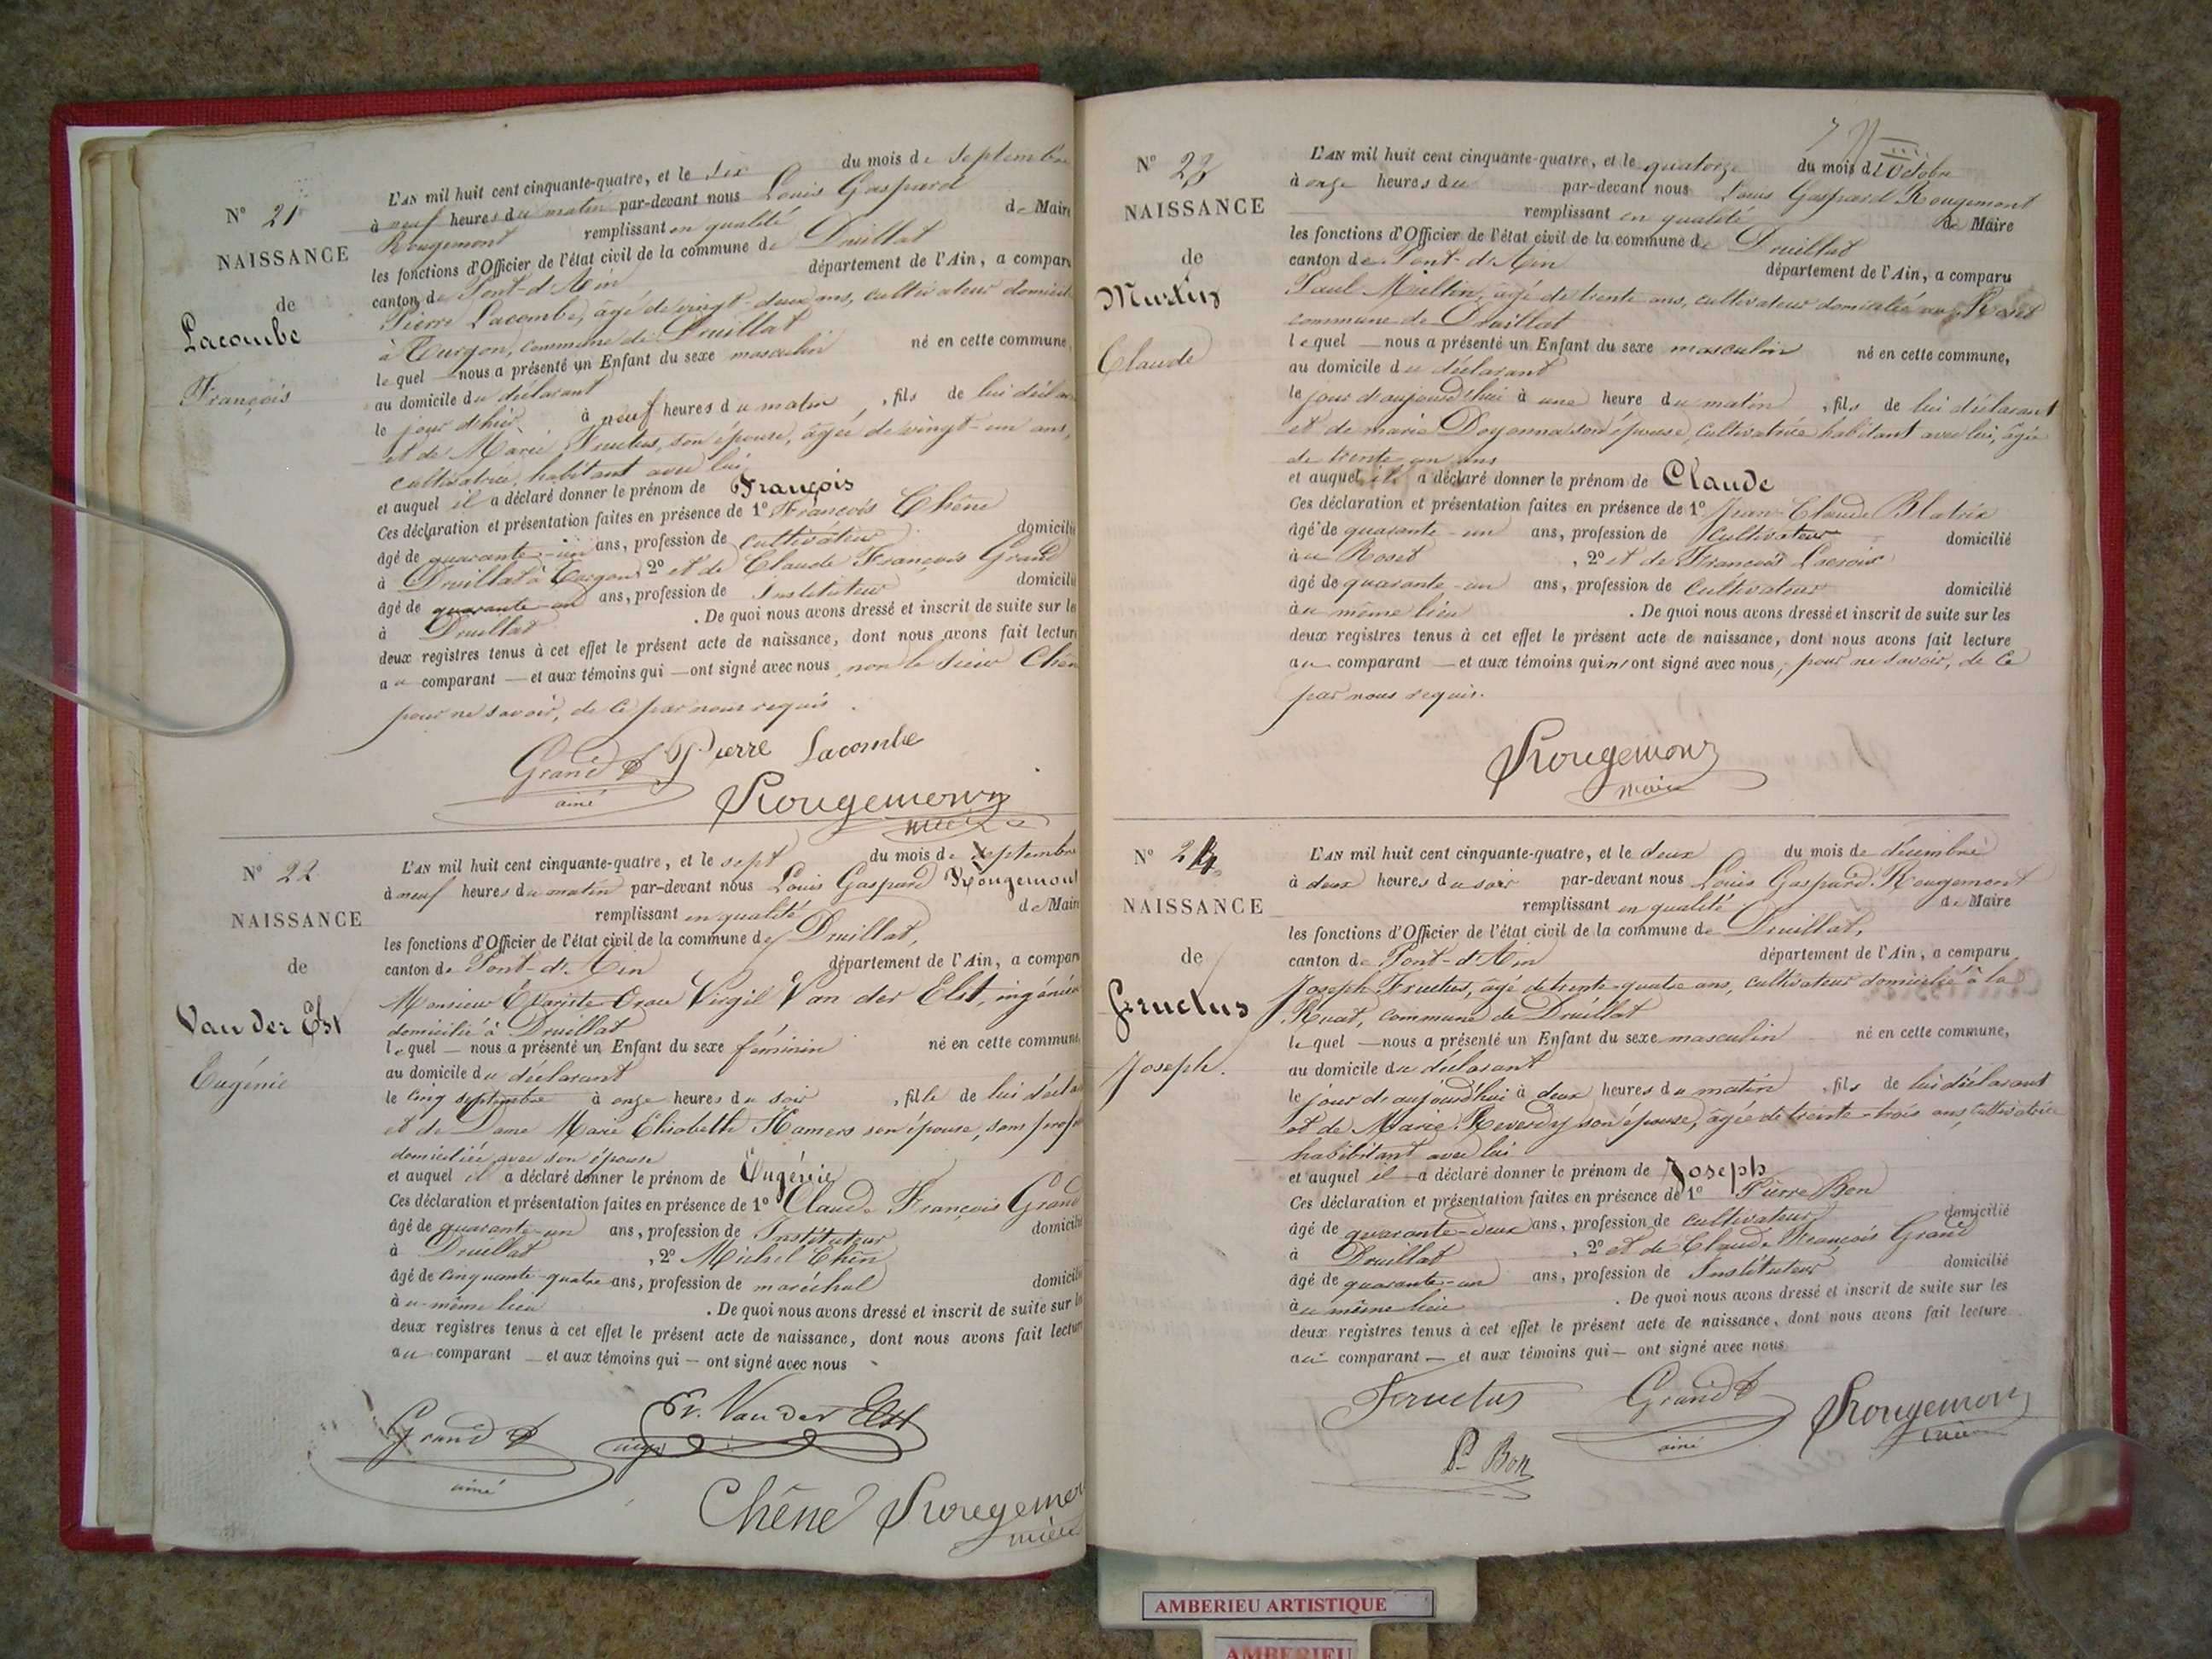 N° 21
NAISSANCE
de
Lacombe
François
L'AN mil huit cent cinquante-quatre, et le six du mois de septembre
à neuf heures du matin par-devant nous Louis Gaspard
Rougemont remplissant en qualité de Maire
les fonctions d'Officier de l'état civil de la commune de Druillat
canton de Pont-d'Ain département de l'Ain, a comparu
Pierre Lacombe, âgé de vingt-deux ans, cultivateur domicilié
à Turgon, commune de Druillat
lequel nous a présenté un Enfant du sexe masculin né en cette commune,
au domicile du déclarant
le jour d'hier à neuf heures du matin, fils de lui déclarant
et de Marie Fructus, son épouse, âgée de vingt-un ans,
cultivatrice, habitant avec lui
et auquel il a déclaré donner le prénom de François
Ces déclaration et présentation faites en présence de 1° François Chêne
âgé de quarante-un ans, profession de cultivateur domicilié
à Druillat à Turgon, 2° et de Claude François Grand
âgé de quarante-un ans, profession de Instituteur domicilié
à Druillat . De quoi nous avons dressé et inscrit de suite sur les
deux registres tenus à cet effet le présent acte de naissance, dont nous avons fait lecture
au comparant et aux témoins qui ont signé avec nous, non le sieur Chêne
pour ne savoir, de ce par nous requis
Grand Pierre Lacombe
ainé Rougemont
maire
N° 22
NAISSANCE
de
Van der Elst
Eugénie
L'AN mil huit cent cinquante-quatre, et le sept du mois de septembre
à neuf heures du matin par-devant nous Louis Gaspard Rougemont
remplissant en qualité de Maire
les fonctions d'Officier de l'état civil de la commune de Druillat,
canton de Pont-d'Ain département de l'Ain, a comparu
Monsieur Évariste Virgil Van der Elst, ingénieur
domicilié à Druillat
lequel nous a présenté un Enfant du sexe féminin né en cette commune,
au domicile du déclarant
le cinq septembre à onze heures du soir, fille de lui déclarant
et de Dame Marie Elisabeth Hamers son épouse, sans prof
domiciliée avec son époux
et auquel il a déclaré donner le prénom de Eugénie
Ces déclaration et présentation faites en présence de 1° Claude François Grand
âgé de quarante-un ans, profession de Instituteur domicilié
à Druillat, 2° Michel Chêne
âgé de cinquante-quatre ans, profession de maréchal domicilié
au même lieu . De quoi nous avons dressé et inscrit de suite sur les
deux registres tenus à cet effet le présent acte de naissance, dont nous avons fait lecture
au comparant et aux témoins qui ont signé avec nous
Grand Ev. Van der Elst
ainé
Chêne Rougemont
maire
N° 23
NAISSANCE
de
Claude
L'AN mil huit cent cinquante-quatre, et le quatorze du mois d'Octobre
à onze heures du par-devant nous Louis Gaspard Rougemont
remplissant en qualité de Maire
les fonctions d'Officier de l'état civil de la commune de Druillat
canton de Pont-d'Ain département de l'Ain, a comparu
Paul âgé de trente ans, cultivateur domicilié au Roset
commune de Druillat
lequel nous a présenté un Enfant du sexe masculin né en cette commune,
au domicile du déclarant
le jour d'aujourd'hui à une heure du matin, fils de lui déclarant
et de marie Doyonna son épouse, cultivatrice habitant avec lui, âgée
de trente un ans
et auquel il a déclaré donner le prénom de Claude
Ces déclaration et présentation faites en présence de 1° Jean-Claude Blatrix
âgé de quarante-un ans, profession de Cultivateur domicilié
au Roset, 2° et de François Lacroix
âgé de quarante-un ans, profession de Cultivateur domicilié
au même lieu . De quoi nous avons dressé et inscrit de suite sur les
deux registres tenus à cet effet le présent acte de naissance, dont nous avons fait lecture
au comparant et aux témoins qui n'ont signé avec nous, pour ne savoir, de ce
par nous requis.
Rougemont
maire
N° 24
NAISSANCE
de
Fructus
Joseph.
L'AN mil huit cent cinquante-quatre, et le deux du mois de décembre
à deux heures du soir par-devant nous Louis Gaspard Rougemont
remplissant en qualité de Maire
les fonctions d'Officier de l'état civil de la commune de Druillat,
canton de Pont-d'Ain département de l'Ain, a comparu
Joseph Fructus, âgé de trente-quatre ans, cultivateur domicilié à la
Ruat, commune de Druillat
lequel nous a présenté un Enfant du sexe masculin né en cette commune,
au domicile du déclarant
le jour d'aujourd'hui à deux heures du matin, fils de lui déclarant
et de Marie Reverdy son épouse, âgée de trente-trois ans, cultivatrice
habibitant avec lui
et auquel il a déclaré donner le prénom de Joseph
Ces déclaration et présentation faites en présence de 1° Pierre Bon
âgé de quarante-deux ans, profession de cultivateur domicilié
à Druillat, 2° et de Claude François Grand
âgé de quarante-un ans, profession de Instituteur domicilié
au même lieu . De quoi nous avons dressé et inscrit de suite sur les
deux registres tenus à cet effet le présent acte de naissance, dont nous avons fait lecture
au comparant et aux témoins qui ont signé avec nous
Fructus Grand Rougemont
ainé maire
P. Bon
AMBERIEU ARTISTIQUE
AMBERIEU